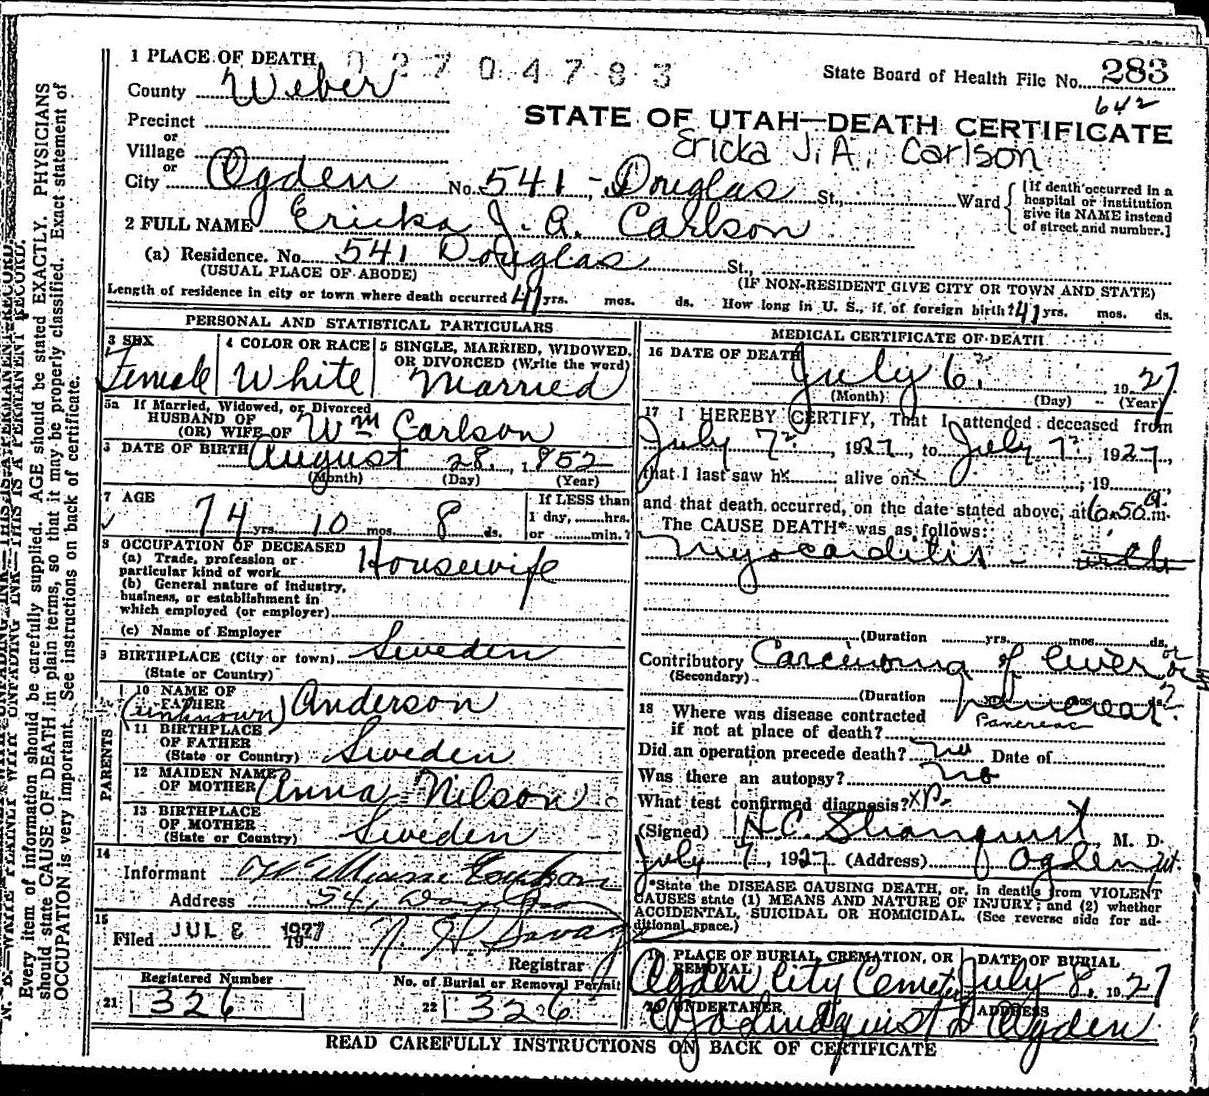 1 PLACE OF DEATH 02704783
State Board of Health File No. 283
County Weber 642
STATE OF UTAH—DEATH CERTIFICATE
Precinct
or
Ericka J.A. Carlson
Village
or
City Ogden No. 541 - Douglas St., Ward [If death occurred in a hospital or institution give its NAME instead of street and number.]
2 FULL NAME Ericka J. A. Carlson
(a) Residence. No. 541 Douglas St.,
(USUAL PLACE OF ABODE) (IF NON-RESIDENT GIVE CITY OR TOWN AND STATE)
Length of residence in city or town where death occurred 41 yrs. mos. ds. How long in U. S., if of foreign birth? 41 yrs. mos. ds.
PERSONAL AND STATISTICAL PARTICULARS
3 SEX Female
4 COLOR OR RACE White
5 SINGLE, MARRIED, WIDOWED, OR DIVORCED (Write the word) Married
5a If Married, Widowed, or Divorced
HUSBAND OF
(OR) WIFE OF Wm Carlson
6 DATE OF BIRTH August 28, 1852
(Month) (Day) (Year)
7 AGE 74 yrs. 10 mos. 8 ds.
If LESS than
1 day, hrs.
or min.?
8 OCCUPATION OF DECEASED
(a) Trade, profession or
particular kind of work Housewife
(b) General nature of industry,
business, or establishment in
which employed (or employer)
(c) Name of Employer
9 BIRTHPLACE (City or town) Sweden
(State or Country)
PARENTS
10 NAME OF
FATHER (unknown) Anderson
11 BIRTHPLACE
OF FATHER
(State or Country) Sweden
12 MAIDEN NAME
OF MOTHER Anna Nilson
13 BIRTHPLACE
OF MOTHER
(State or Country) Sweden
14
Informant William Carlson
Address 541 Douglas
15
Filed JUL 8 1927
Registrar
Registered Number
21 326
No. of Burial or Removal Permit
22 326
MEDICAL CERTIFICATE OF DEATH
16 DATE OF DEATH July 6, 1927
(Month) (Day) (Year)
17 I HEREBY CERTIFY, That I attended deceased from
July 7, 1927, to July 7, 1927,
that I last saw h alive on , 19
and that death occurred, on the date stated above, at 6:50 a.m.
The CAUSE DEATH* was as follows:
Myocarditis - with
(Duration yrs. mos. ds.
Contributory Carcinoma of liver or
(Secondary)
(Duration pancreas?
18 Where was disease contracted Pancreas
if not at place of death?
Did an operation precede death? no Date of
Was there an autopsy? no
What test confirmed diagnosis?
(Signed) H.C. Stranquist, M. D.
July 7, 1927 (Address) Ogden Ut.
*State the DISEASE CAUSING DEATH, or, in deaths from VIOLENT
CAUSES state (1) MEANS AND NATURE OF INJURY; and (2) whether
ACCIDENTAL, SUICIDAL OR HOMICIDAL. (See reverse side for ad-
ditional space.)
19 PLACE OF BURIAL, CREMATION, OR REMOVAL Ogden City Cemetery
DATE OF BURIAL July 8, 1927
20 UNDERTAKER Lindquist
ADDRESS Ogden
READ CAREFULLY INSTRUCTIONS ON BACK OF CERTIFICATE
N. B.—WRITE PLAINLY WITH UNFADING INK—THIS IS A PERMANENT RECORD.
Every item of information should be carefully supplied. AGE should be stated EXACTLY. PHYSICIANS
should state CAUSE OF DEATH in plain terms, so that it may be properly classified. Exact statement of
OCCUPATION is very important. See instructions on back of certificate.